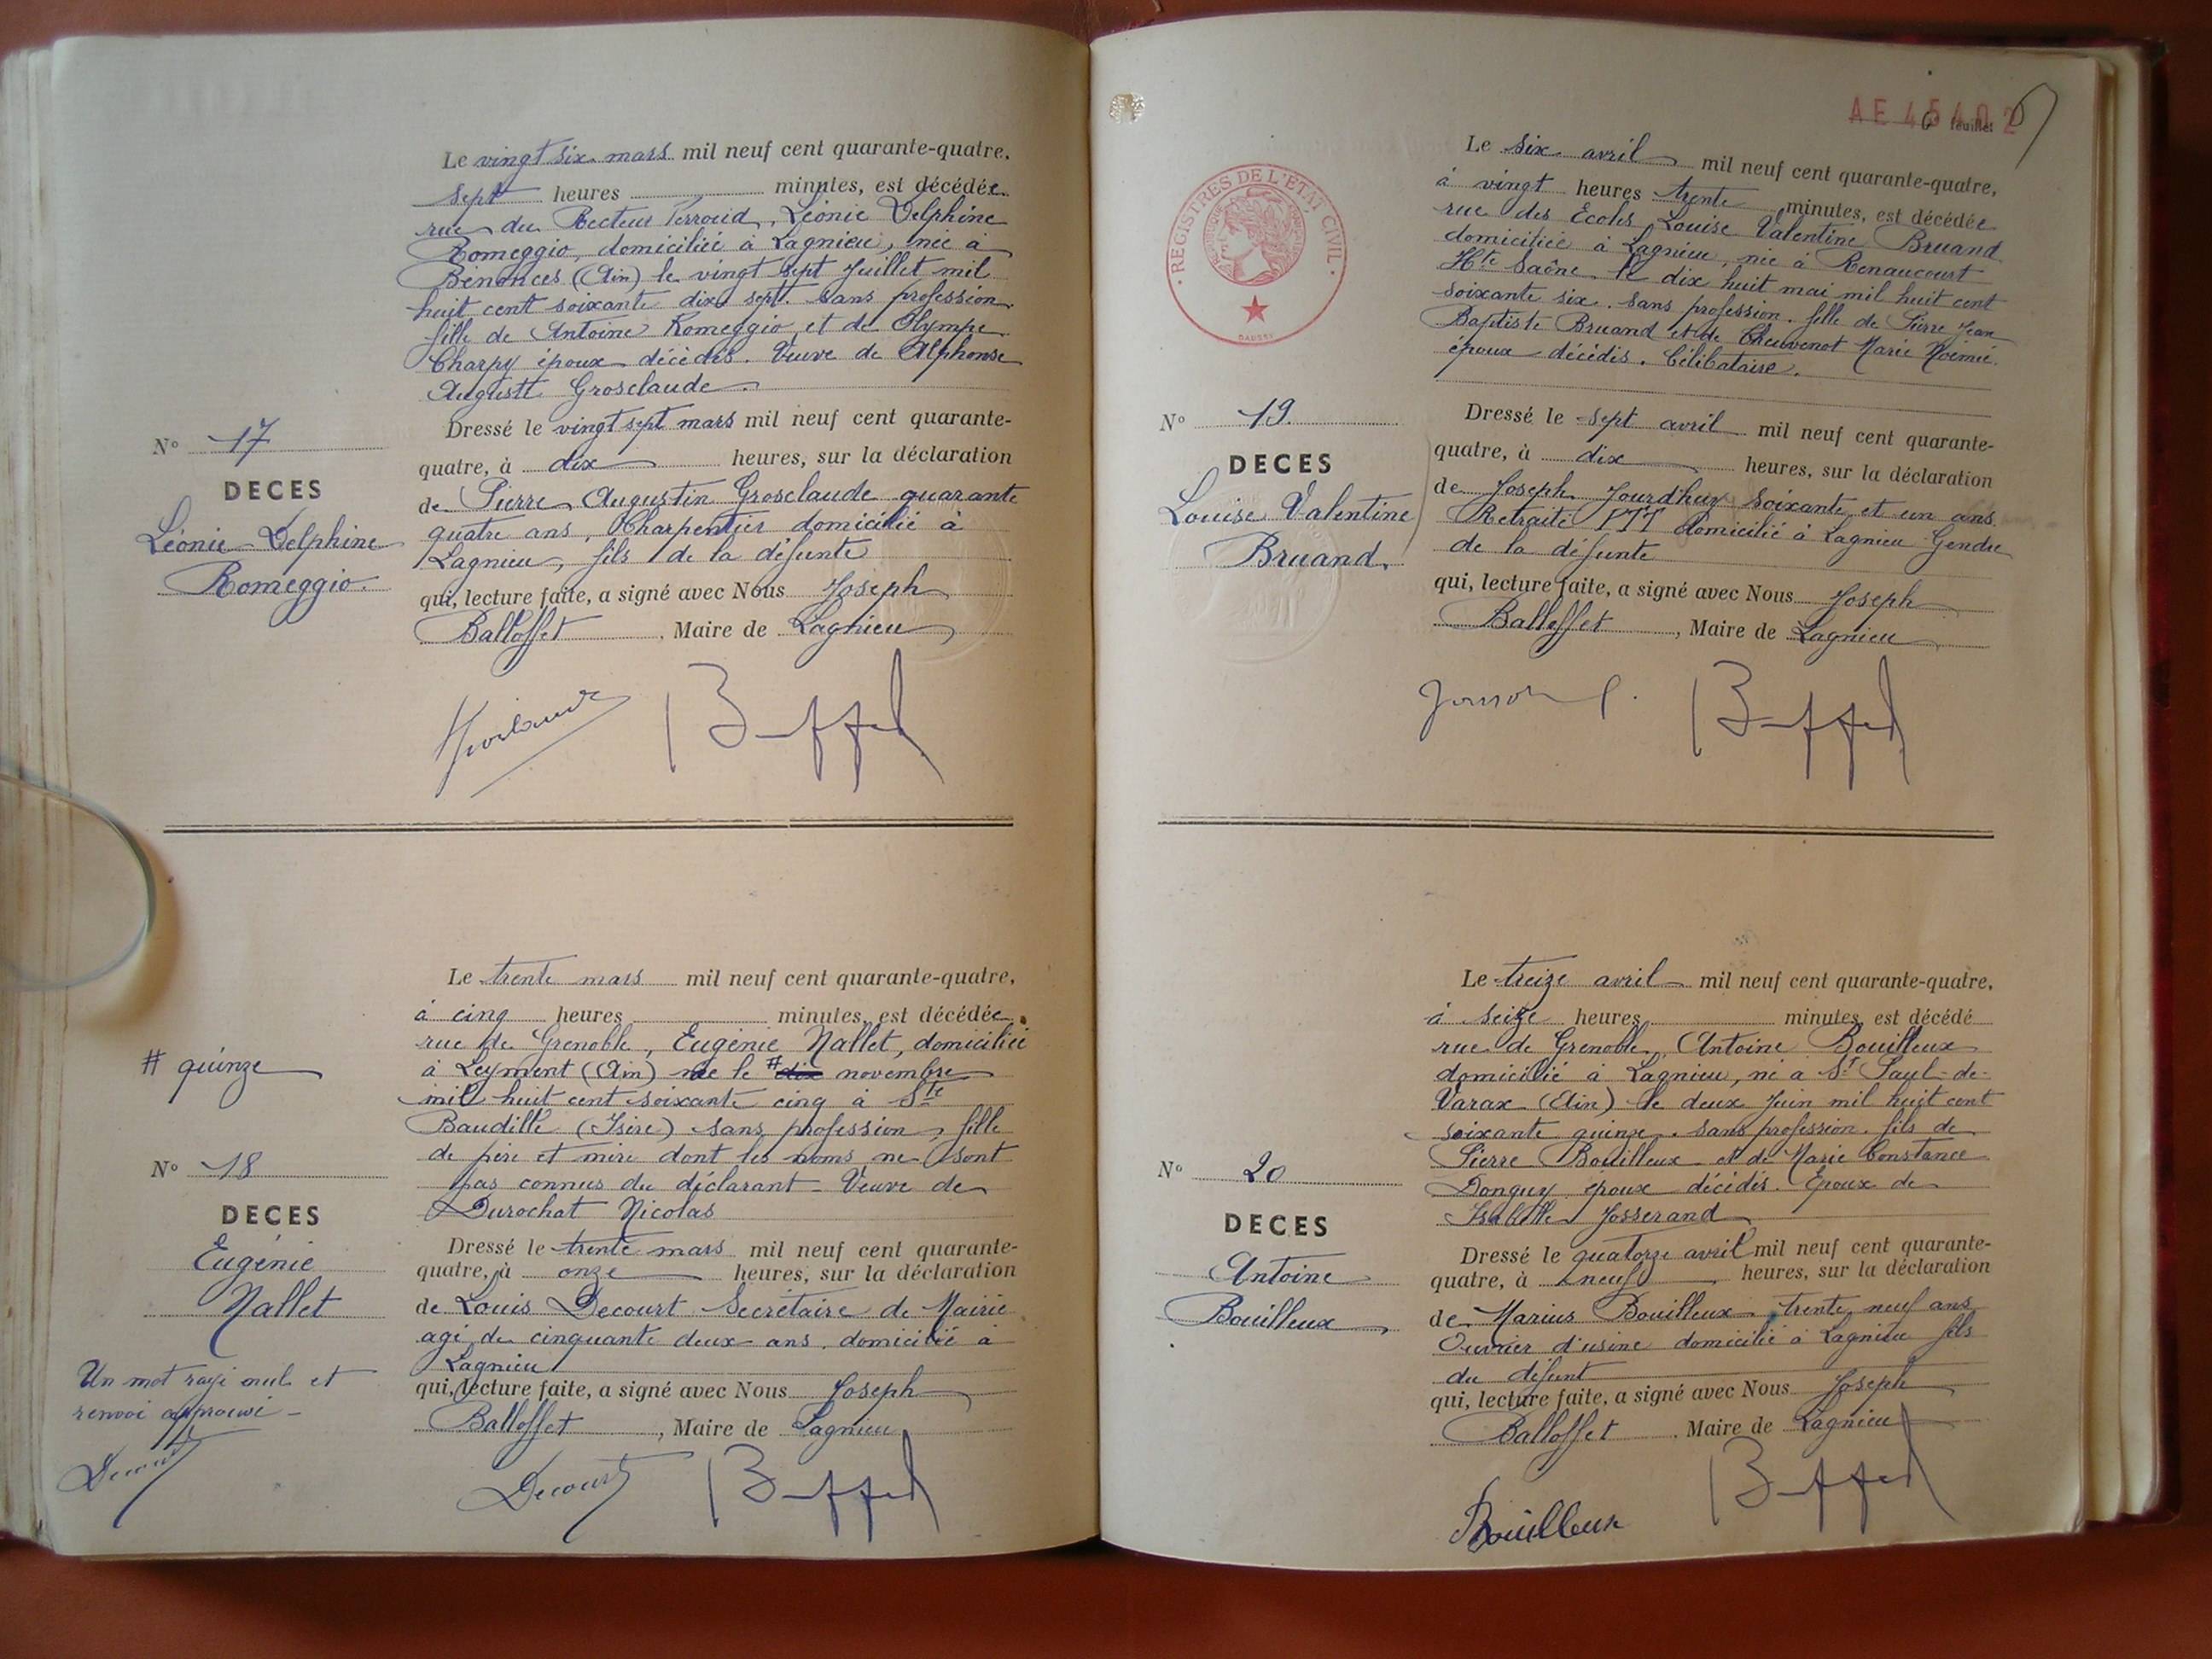 Le vingt six mars mil neuf cent quarante-quatre,
sept heures minutes, est décédée
rue du Recteur Perroud, Léonie Delphine
Romeggio, domiciliée à Lagnieu, née à
Bénonces (Ain) le vingt sept Juillet mil
huit cent soixante dix sept. Sans profession.
fille de Antoine Romeggio et de Olympe
Charpy époux décédés. Veuve de Alphonse
Auguste Grosclaude.
Dressé le vingt sept mars mil neuf cent quarante-
quatre, à dix heures, sur la déclaration
de Pierre Augustin Grosclaude quarante
quatre ans, Charpentier domicilié à
Lagnieu, fils de la défunte
qui, lecture faite, a signé avec Nous Joseph
Balloffet, Maire de Lagnieu
N° 17
DECES
Léonie Delphine
Romeggio.
Le trente mars mil neuf cent quarante-quatre,
à cinq heures minutes, est décédée
rue de Grenoble, Eugénie Nallet, domiciliée
à Leyment (Ain) née le # dix novembre
mil huit cent soixante cinq à Ste
Baudille (Isère) sans profession, fille
de père et mère dont les noms ne sont
pas connus du déclarant - Veuve de
Durochat Nicolas
Dressé le trente mars mil neuf cent quarante-
quatre, à onze heures, sur la déclaration
de Louis Decourt Secrétaire de Mairie
agé de cinquante deux ans domicilié à
Lagnieu
qui, lecture faite, a signé avec Nous Joseph
Balloffet, Maire de Lagnieu
Decourt
# quinze
N° 18
DECES
Eugénie
Nallet
Un mot rayé nul et
renvoi approuvé -
Decourt
AE 45402
6 feuillet
REGISTRES DE L'ETAT CIVIL
Le six avril mil neuf cent quarante-quatre,
à vingt heures trente minutes, est décédée
rue des Ecoles Louise Valentine Bruand
domiciliée à Lagnieu, née à Renaucourt
Hte Saône le dix huit mai mil huit cent
soixante six. Sans profession. fille de Pierre Jean
Baptiste Bruand et de Cheuvenot Marie Noémie.
époux décédés. Célibataire.
Dressé le sept avril mil neuf cent quarante-
quatre, à dix heures, sur la déclaration
de Joseph Jourdhuy soixante et un ans
Retraité PTT domicilié à Lagnieu Gendre
de la défunte
qui, lecture faite, a signé avec Nous Joseph
Balloffet, Maire de Lagnieu
N° 19.
DECES
Louise Valentine
Bruand.
Le treize avril mil neuf cent quarante-quatre,
à seize heures minutes, est décédé
rue de Grenoble, Antoine Bouilleux
domicilié à Lagnieu, né à St Paul-de-
Varax (Ain) le deux Juin mil huit cent
soixante quinze. Sans profession. fils de
Pierre Bouilleux et de Marie Constance
Donguy époux décédés. Epoux de
Isabelle Josserand
Dressé le quatorze avril mil neuf cent quarante-
quatre, à neuf heures, sur la déclaration
de Marius Bouilleux trente neuf ans
Ouvrier d'usine domicilié à Lagnieu fils
du défunt
qui, lecture faite, a signé avec Nous Joseph
Balloffet. Maire de Lagnieu
Bouilleux
N° 20
DECES
Antoine
Bouilleux